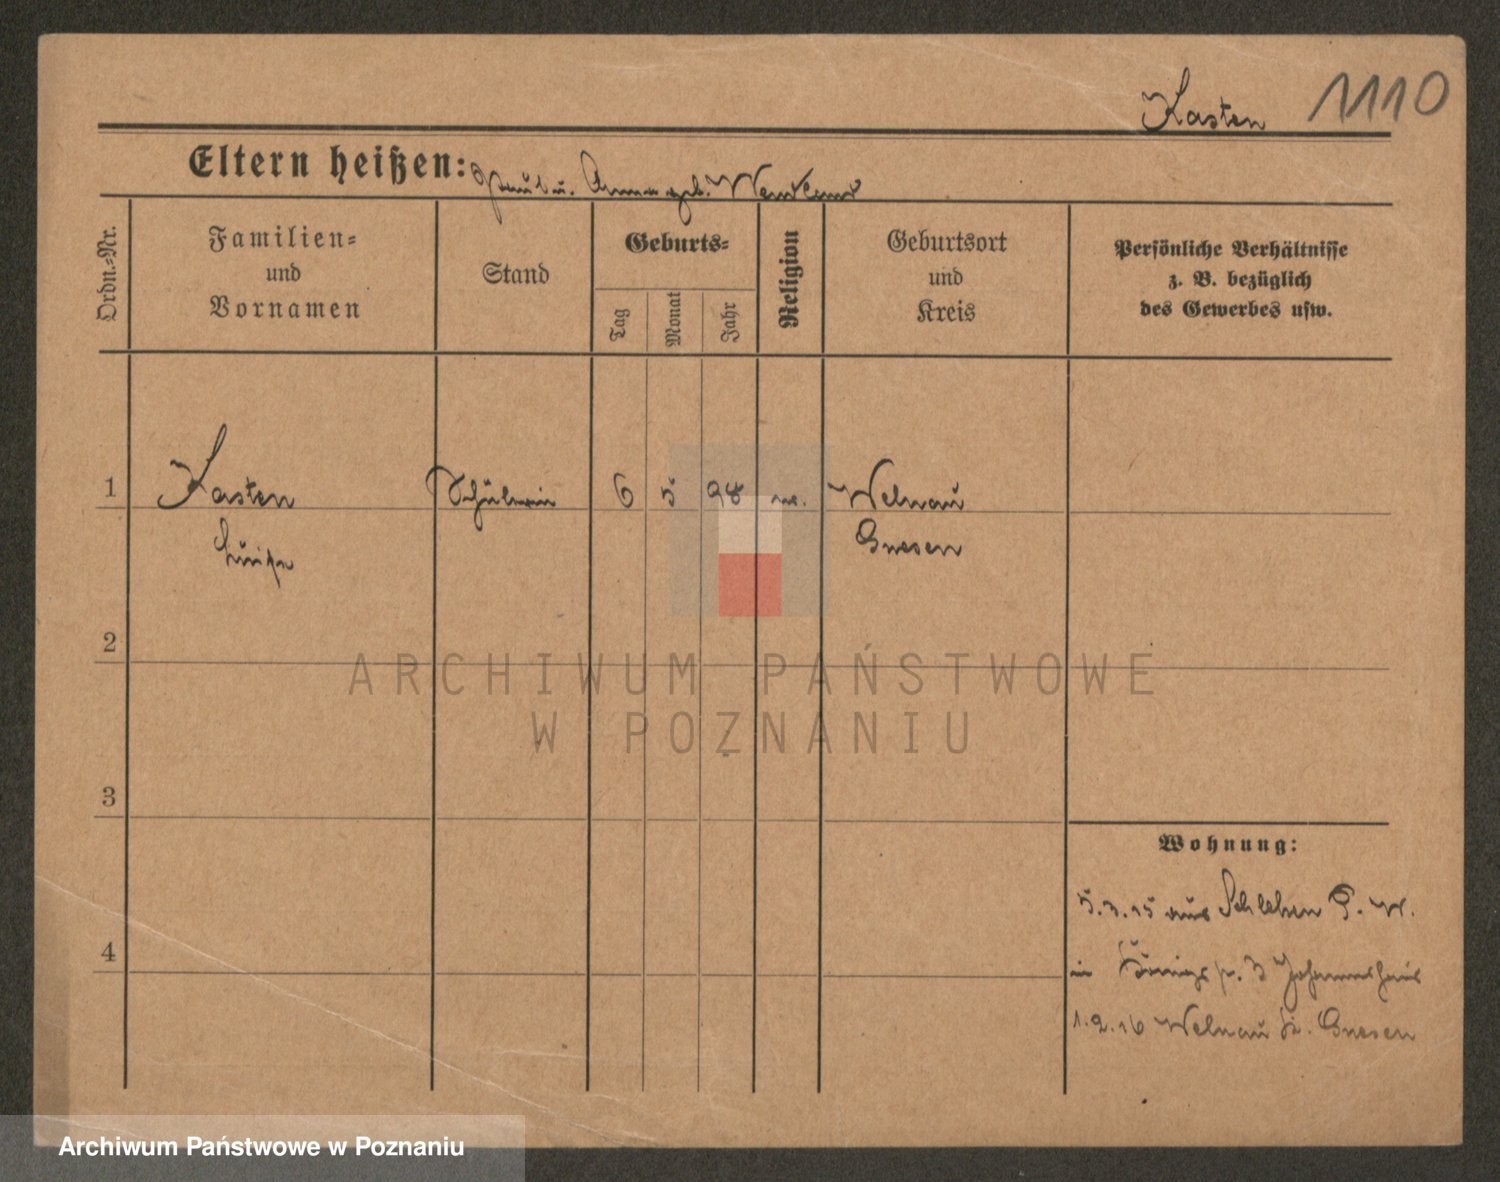 Kasten 1110
Eltern heißen: Paul u. Anna geb. Wendland
Ordn.-Nr.
Familien-
und
Vornamen
Stand
Geburts-
Tag
Monat
Jahr
Religion
Geburtsort
und
Kreis
Persönliche Verhältnisse
z. B. bezüglich
des Gewerbes usw.
1 Kasten Schülerin 6 5 98 ev. Welnau
Luise Gnesen
2
3
4
Wohnung:
5.3.15 aus Schlehen P. W.
in Königspl. 3 Johanneshaus
1.2.16 Welnau Kr. Gnesen
ARCHIWUM PAŃSTWOWE
W POZNANIU
Archiwum Państwowe w Poznaniu